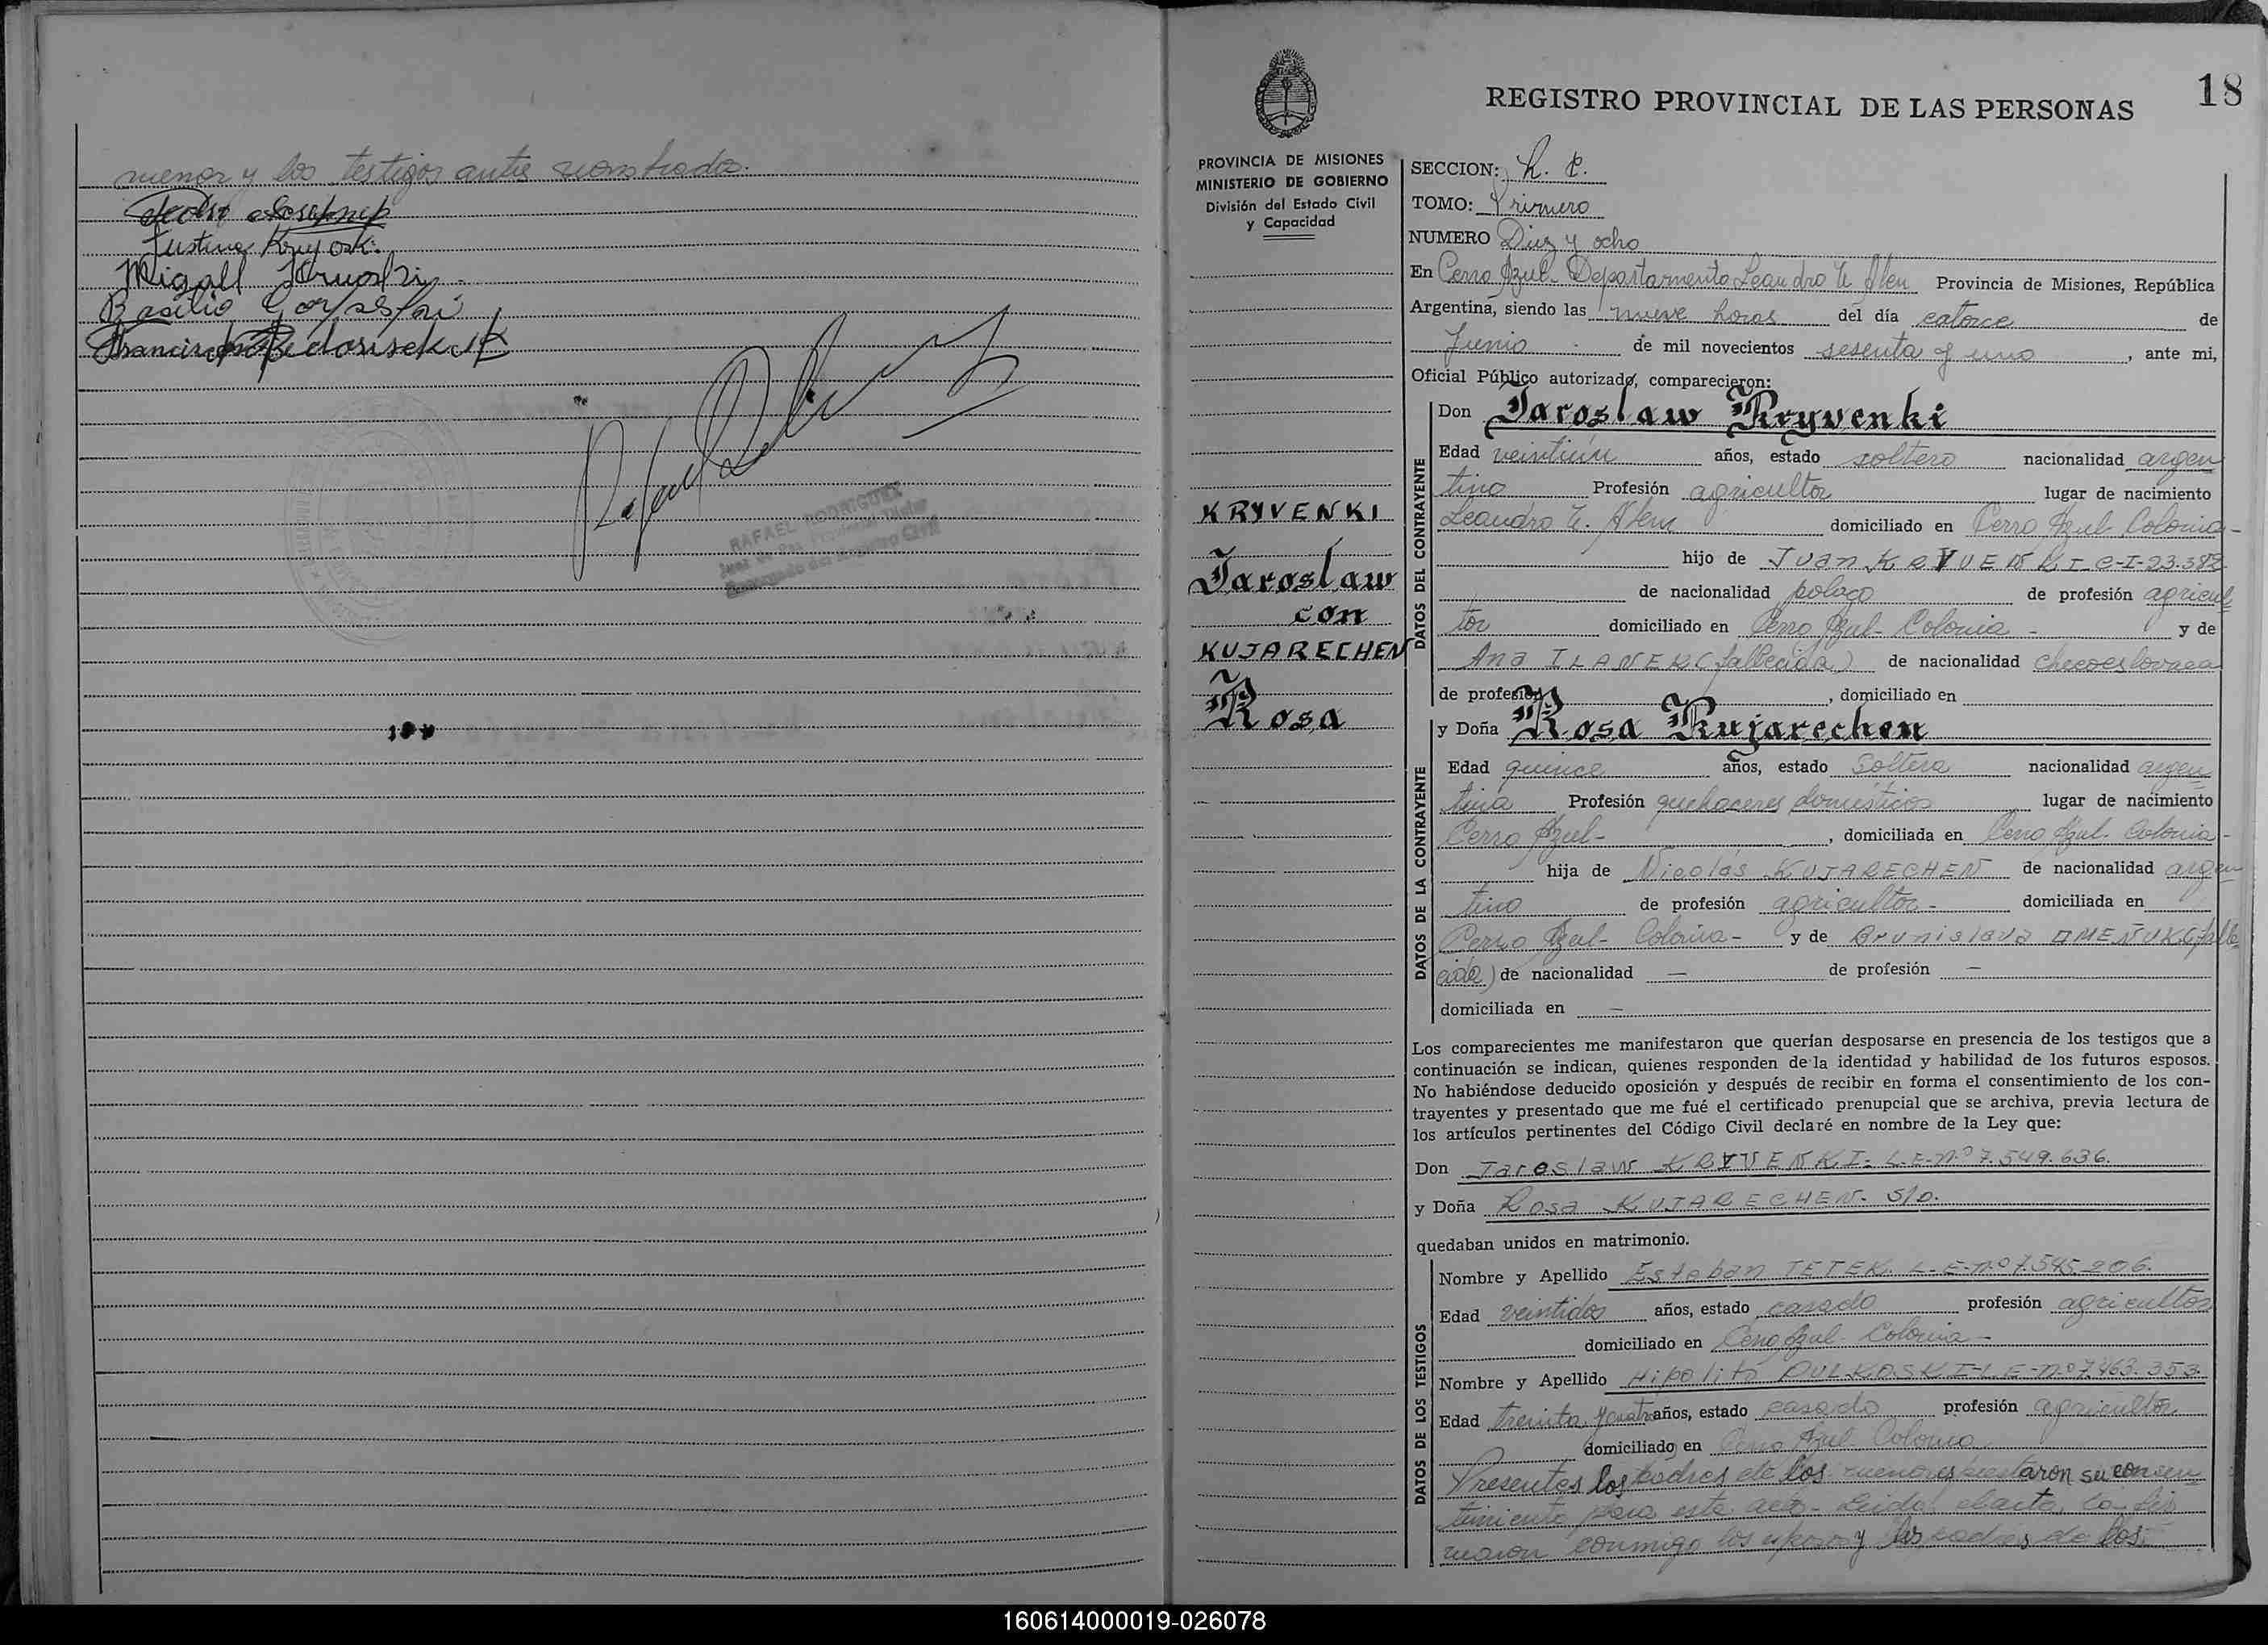 menor y los testigos antes nombrados.
Justina Kruyoski
Migall Kruoski
Basilio
Francisco
RAFAEL RODRIGUEZ
18
REGISTRO PROVINCIAL DE LAS PERSONAS
PROVINCIA DE MISIONES
MINISTERIO DE GOBIERNO
División del Estado Civil
y Capacidad
KRYVENKI
Jaroslaw
con
KUJARECHEN
Rosa
SECCION:
TOMO: Primero
NUMERO Diez y ocho
En Cerro Azul Departamento Leandro N. Alem Provincia de Misiones, República
Argentina, siendo las nueve horas del día catorce de
Junio de mil novecientos sesenta y uno, ante mi,
Oficial Público autorizado, comparecieron:
DATOS DEL CONTRAYENTE
Don Jaroslaw Kryvenki
Edad veintiún años, estado soltero nacionalidad argen
tino Profesión agricultor lugar de nacimiento
Leandro N. Alem domiciliado en Cerro Azul Colonia-
hijo de Juan KRYVENKI C-I-23.382
de nacionalidad polaco de profesión agricul
tor domiciliado en Cerro Azul- Colonia - y de
Ana ILANEK (fallecida) de nacionalidad checoeslovaca
de profesión , domiciliado en
DATOS DE LA CONTRAYENTE
y Doña Rosa Kujarechen
Edad quince años, estado Soltera nacionalidad argen
tina Profesión quehaceres domésticos lugar de nacimiento
Cerro Azul- , domiciliada en Cerro Azul- Colonia-
hija de Nicolás KUJARECHEN de nacionalidad argen
tino de profesión agricultor- domiciliada en
Cerro Azul- Colonia- y de Brunislava OMEÑUK (falle
cida) de nacionalidad — de profesión —
domiciliada en —
Los comparecientes me manifestaron que querían desposarse en presencia de los testigos que a
continuación se indican, quienes responden de la identidad y habilidad de los futuros esposos.
No habiéndose deducido oposición y después de recibir en forma el consentimiento de los con-
trayentes y presentado que me fué el certificado prenupcial que se archiva, previa lectura de
los artículos pertinentes del Código Civil declaré en nombre de la Ley que:
Don Jaroslaw KRYVENKI- L.E-nº 7.549.636.
y Doña Rosa KUJARECHEN- S/D.
quedaban unidos en matrimonio.
DATOS DE LOS TESTIGOS
Nombre y Apellido Esteban TETEK. L-E-nº 7.545.206.
Edad veintidos años, estado casado profesión agricultor
domiciliado en Cerro Azul- Colonia-
Nombre y Apellido Hipolito DULKOSKI- L.E-nº 7.463.353.
Edad treinta y cuatro años, estado casado profesión agricultor
domiciliado en Cerro Azul- Colonia
Presentes los padres de los menores prestaron su consen
timiento para este acto- Leida el acta, la fir
maron conmigo los esposos y los padres de los
160614000019-026078